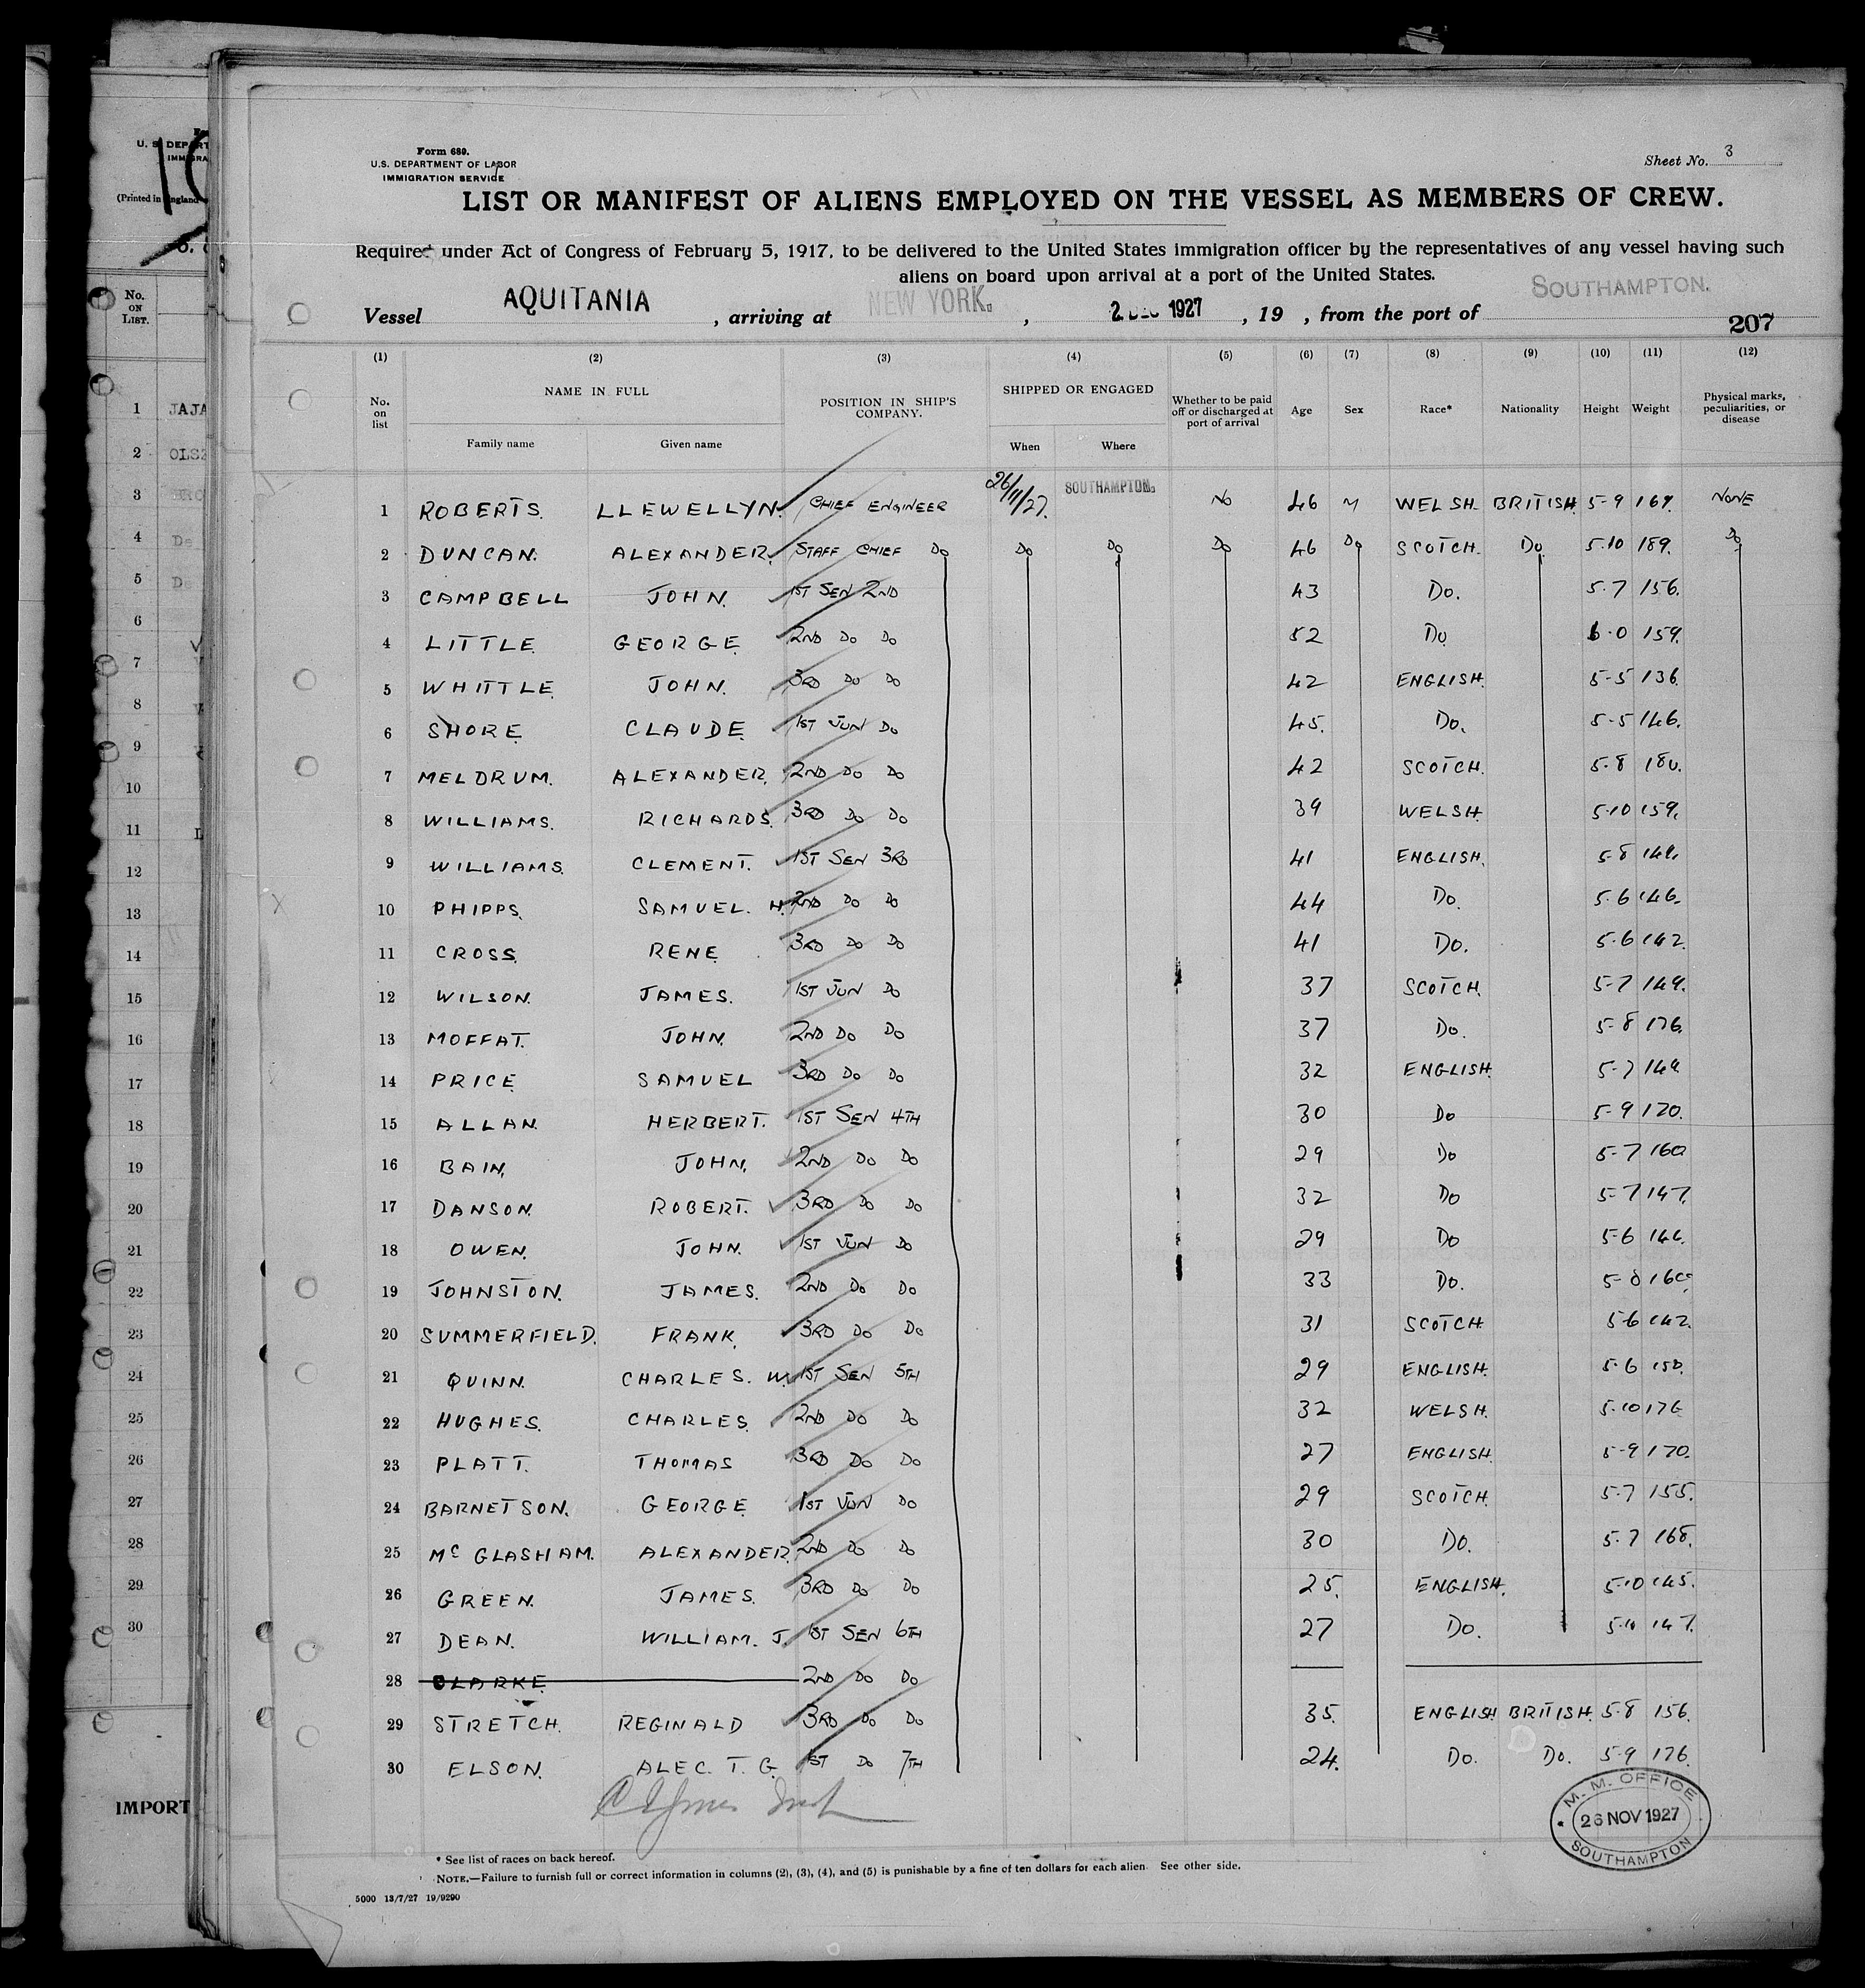 Form 689.
U.S. DEPARTMENT OF LABOR
IMMIGRATION SERVICE
Sheet No. 3
LIST OR MANIFEST OF ALIENS EMPLOYED ON THE VESSEL AS MEMBERS OF CREW.
Required under Act of Congress of February 5, 1917, to be delivered to the United States immigration officer by the representatives of any vessel having such
aliens on board upon arrival at a port of the United States.
Vessel AQUITANIA, arriving at NEW YORK., 2 DEC 1927, 19 , from the port of SOUTHAMPTON.
207
(1) (2) (3) (4) (5) (6) (7) (8) (9) (10) (11) (12)
No. on list NAME IN FULL Family name Given name POSITION IN SHIP'S COMPANY. SHIPPED OR ENGAGED When Where Whether to be paid off or discharged at port of arrival Age Sex Race* Nationality Height Weight Physical marks, peculiarities, or disease
1 ROBERTS. LLEWELLYN. CHIEF ENGINEER 26/11/27. SOUTHAMPTON. No 46 M WELSH. BRITISH. 5-9 169. NONE
2 DUNCAN. ALEXANDER. STAFF CHIEF Do Do Do Do 46 Do SCOTCH. Do 5.10 189. Do
3 CAMPBELL JOHN. 1ST SEN 2ND 43 Do. 5.7 156.
4 LITTLE GEORGE. 2ND Do Do 52 Do 6.0 159.
5 WHITTLE. JOHN. 3RD Do Do 42 ENGLISH. 5-5 136.
6 SHORE CLAUDE. 1ST JUN Do 45. Do. 5-5 146.
7 MELDRUM. ALEXANDER. 2ND Do Do 42 SCOTCH. 5.8 180.
8 WILLIAMS. RICHARDS. 3RD Do Do 39 WELSH. 5.10 159.
9 WILLIAMS. CLEMENT. 1ST SEN 3RD 41 ENGLISH. 5-8 149.
10 PHIPPS. SAMUEL. H. 2ND Do Do 44 Do. 5.6 146.
11 CROSS. RENE 3RD Do Do 41 Do. 5.6 142.
12 WILSON. JAMES. 1ST JUN Do 37 SCOTCH. 5-7 149.
13 MOFFAT. JOHN. 2ND Do Do 37 Do. 5-8 176.
14 PRICE SAMUEL 3RD Do Do 32 ENGLISH. 5-7 149
15 ALLAN. HERBERT. 1ST SEN 4TH 30 Do 5-9 170.
16 BAIN. JOHN. 2ND Do Do 29 Do 5-7 160
17 DANSON. ROBERT. 3RD Do Do 32 Do 5-7 147.
18 OWEN. JOHN. 1ST JUN Do 29 Do 5-6 146.
19 JOHNSTON. JAMES. 2ND Do Do 33 Do. 5-8 160.
20 SUMMERFIELD. FRANK. 3RD Do Do 31 SCOTCH 5-6 142.
21 QUINN. CHARLES. W. 1ST SEN 5TH 29 ENGLISH. 5.6 150.
22 HUGHES. CHARLES. 2ND Do Do 32 WELSH. 5.10 176
23 PLATT. THOMAS 3RD Do Do 27 ENGLISH. 5-9 170.
24 BARNETSON. GEORGE 1ST JUN Do 29 SCOTCH. 5.7 155.
25 Mc GLASHAM. ALEXANDER. 2ND Do Do 30 Do. 5.7 168.
26 GREEN. JAMES. 3RD Do Do 25. ENGLISH. 5.10 145.
27 DEAN. WILLIAM. J. 1ST SEN 6TH 27 Do. 147.
28 CLARKE 2ND Do Do
29 STRETCH. REGINALD 3RD Do Do 35. ENGLISH BRITISH. 5-8 156.
30 ELSON. ALEC. T. G. 1ST Do 7TH 24. Do. Do. 5-9 176.
M. M. OFFICE
26 NOV 1927
SOUTHAMPTON
* See list of races on back hereof.
NOTE.—Failure to furnish full or correct information in columns (2), (3), (4), and (5) is punishable by a fine of ten dollars for each alien. See other side.
5000 13/7/27 19/9290
(Printed in England
No. ON LIST.
1 JAJA
2
3
4 Do
5 Do
6
7
8
9
10
11
12
13
14
15
16
17
18
19
20
21
22
23
24
25
26
27
28
29
30
IMPORT